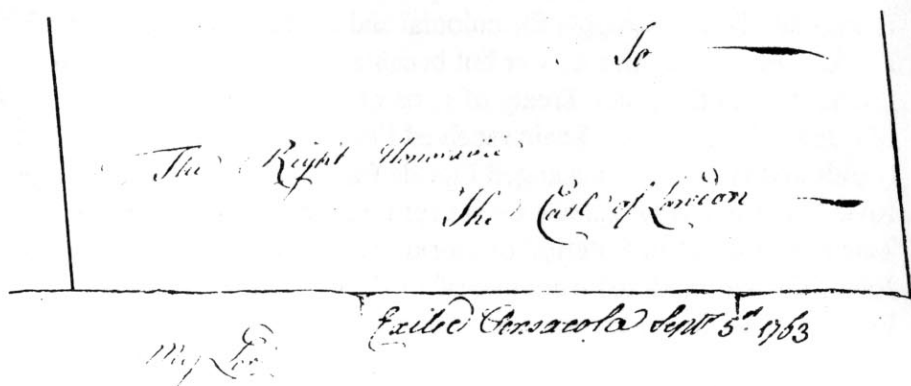 To
The Right Honourable
The Earl of Loudon
Exiled Pensacola Septr 5th 1763
My Lord